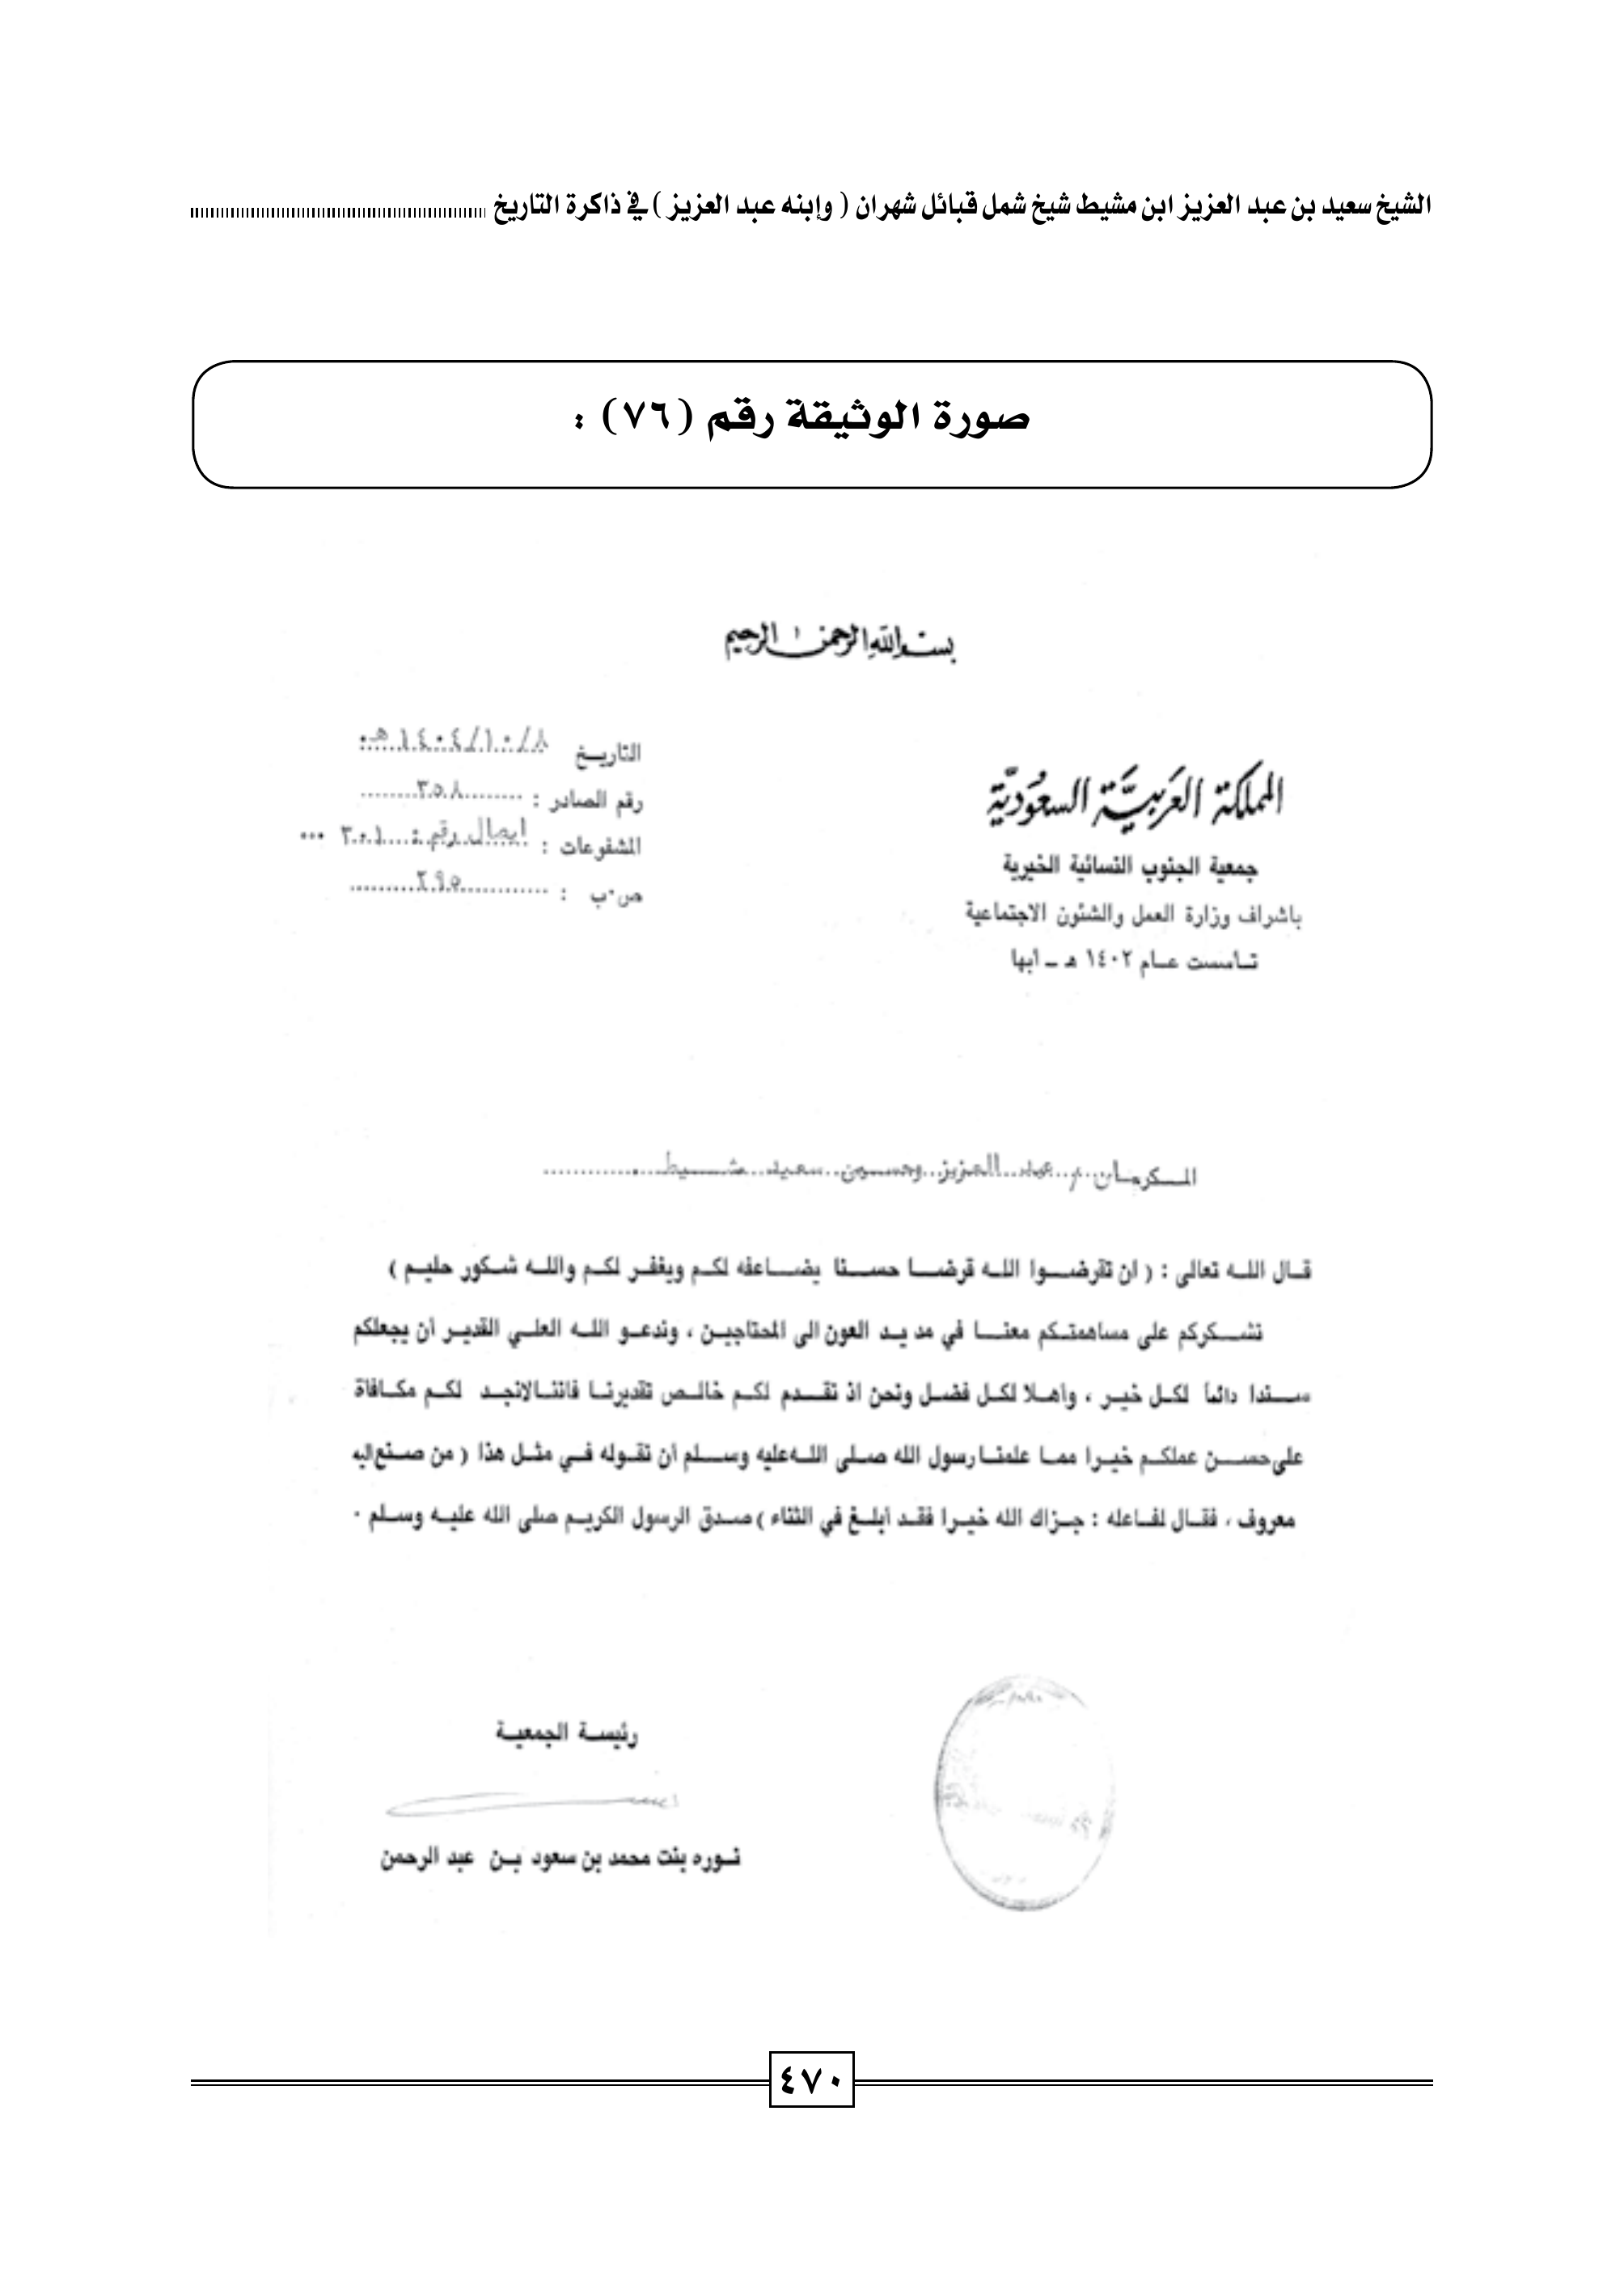 الشيخ سعيد بن عبد العزيز ابن مشيط شيخ شمل قبائل شهران ( وإبنه عبد العزيز ) في ذاكرة التاريخ
صورة الوثيقة رقم (٧٦) :
بسم الله الرحمن الرحيم
المملكة العربية السعودية
جمعية الجنوب النسائية الخيرية
باشراف وزارة العمل والشئون الاجتماعية
تأسست عام ١٤٠٢ هـ - أبها
التاريخ ٨/١٠/١٤٠٤هـ
رقم الصادر : ٣٥٨
المشفوعات : ايصال رقم : ٣٠١
ص٠ب : ٢٩٥
المكرمان / عبد العزيز وحسين سعيد مشيط
قال الله تعالى : ( ان تقرضوا الله قرضا حسنا يضاعفه لكم ويغفر لكم والله شكور حليم )
نشكركم على مساهمتكم معنا في مد يد العون الى المحتاجين ، وندعو الله العلي القدير أن يجعلكم
سندا دائماً لكل خير ، وأهلا لكل فضل ونحن اذ نقدم لكم خالص تقديرنا فاننا لانجد لكم مكافأة
على حسن عملكم خيرا مما علمنا رسول الله صلى الله عليه وسلم أن نقوله في مثل هذا ( من صنع اليه
معروف ، فقال لفاعله : جزاك الله خيرا فقد أبلغ في الثناء ) صدق الرسول الكريم صلى الله عليه وسلم ٠
رئيسة الجمعية
نوره بنت محمد بن سعود بن عبد الرحمن
٤٧٠